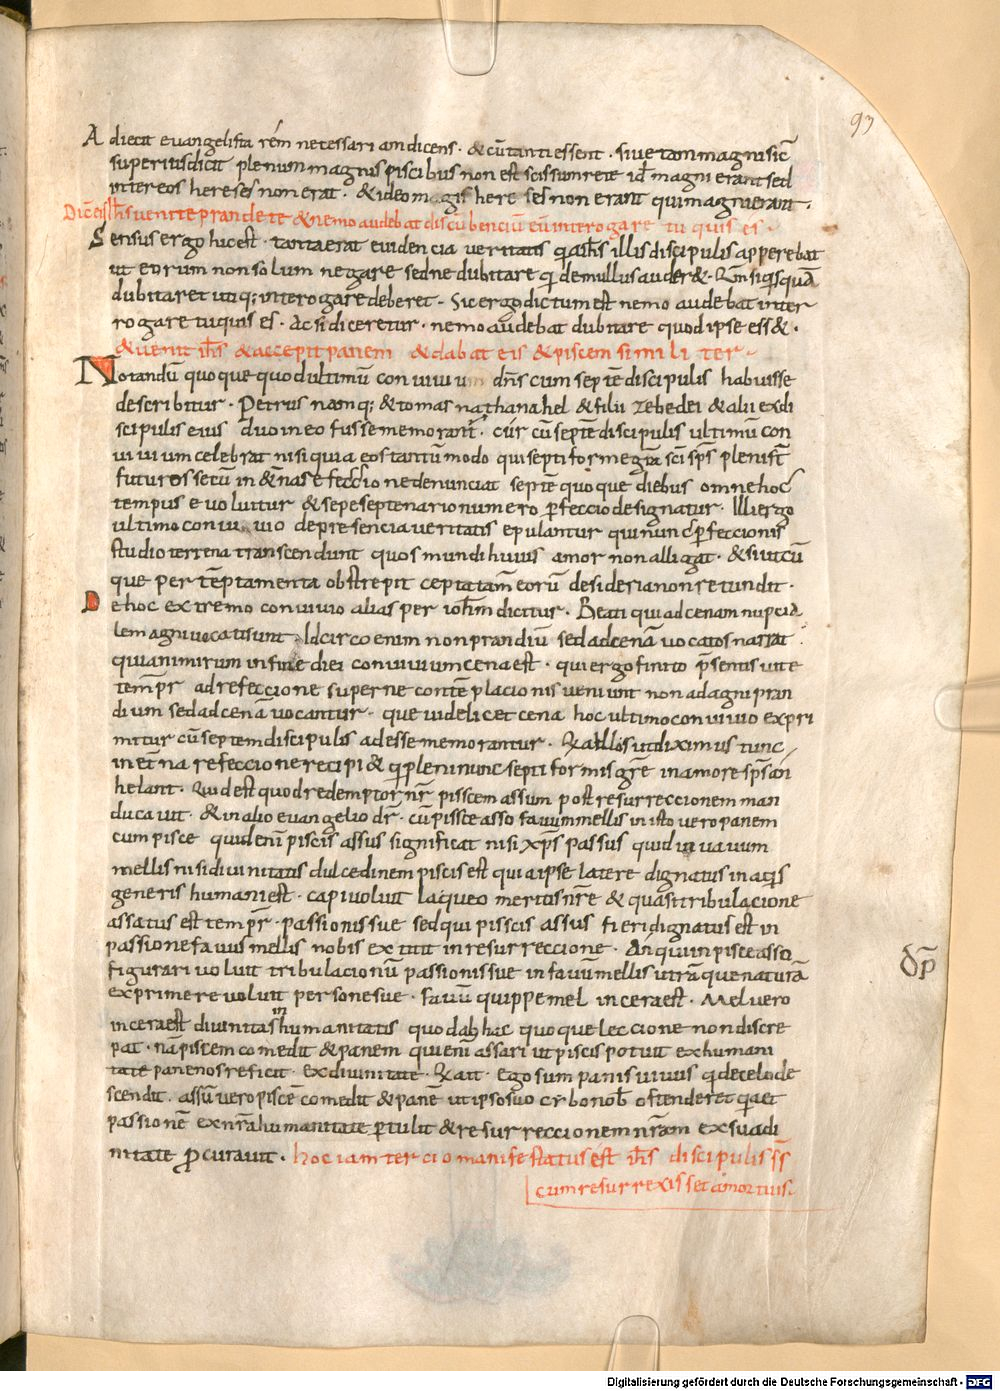 93
Adiecit euangelista rem̄ necessariam dicens · & cū tanti essent · siue tam magni sic̄
superius dicit plenum magnis piscibus non est scissum rete id magni erant sed
inter eos hereses non erat · & ideo magis hereses non erant qui magni erant ·
Dic̄ eis ih̄s venite prandete & nemo audebat discūbenciū eū interogare tu quis es ·
Sensus ergo hic est · tanta erat euidencia veritatis qua ih̄s illis discipulis apperebat
ut eorum non solum negare sed ne dubitare qidem ullus auder& · Qm̄ si qisquā
dubitaret utiq; interogare deberet · Sic ergo dictum est nemo audebat inter
rogare tu quis es · Ac si diceretur · nemo audebat dubitare quod ipse ess& ·
& venit ih̄s & accepit panem & dabat eis & piscem similiter ·
Notandū quoque quod ultimū conuiuium dn̄s cum septē discipulis habuisse
describitur · Petrus namq; & tomas nathanahel & filii zebedei & alii ex di
scipulis eius duo in eo fuisse memorant̄ · cur cū septē discipulis ultimū con
uiuium celebrat nisi quia eos tantū modo qui septiformę gr̄a sc̄i sp̄s plenis̄t
futuros secū in &nas efeccione denunciat septē quoque diebus omne hoc
tempus euoluitur & sepe septenario numero p̄feccio designatur · Illi ergo
ultimo conuiuio de presencia ueritatis epulantur qui nunc p̄feccionis
studio terrena transcendunt quos mundi huius amor non alligat · & si utcū
que per tēptamenta obstrepit cepta tam̄ eorū desideria non retundit ·
De hoc extremo conuiuio alias per ioh̄m dicitur · Beati qui ad cenam nupcia
lem agni uocati sunt · Idcirco enim non prandiū sed ad cenā uocatos narrat ·
quia nimirum in fine diei conuiuium cena est · qui ergo finito p̄sentis uite
temp̄r ad refeccione superne contēplacionis veniunt non ad agni pran
dium sed ad cenā vocantur · que uidelicet cena hoc ultimo conuiuio expri
mitur cū septem discipulis adesse memorantur ·
in et̄na refeccione recipi& q pleni nunc septiformis gr̄e in amore sp̄s an
helant · Quid est quod redemptor nr̄ pisscem assum post resurreccionem man
ducauit · & in alio euangelio dr̄ · cū pissce asso fauum mellis in isto vero panem
cum pisce quid enī piscis assus significat nisi xp̄s passus quid uauum
mellis nisi diuinitatis dulcedinem piscis est quia ipse latere dignatus in aqis
generis humani est · capi uoluit laqueo mortis nr̄e & quasi tribulacione
assatus est temp̄r · passionis sue sed qui pisscis assus fieri dignatus est in
passione fauus mellis nobis extitit in resurreccione · An qui in pisce asso
figurari uoluit tribulacionū passionis sue in fauū mellis utrāque naturā
exprimere uoluit persone sue · fauū quippe mel in cera est · Mel vero
in cera est diuinitas in humanitatis quod ab hac quoque leccione non discre
pat · nā piscem comedit & panem qui enī assari ut piscis potuit ex humani
tate pane nos reficit · ex diuinitate · Qui ait · ego sum panis uiuus q de celo de
scendit · assū vero piscē comedit & panē ut ipso suo cybo nob̄ ostenderet q̄a et
passionē ex nr̄a humanitate p̄tulit & resurreccionem nr̄am ex sua di
nitate p̄curauit · hoc iam tercio manifestatus est ih̄s discipulis s̄s̄
cum resurrexisset a mortuis ·
Digitalisierung gefördert durch die Deutsche Forschungsgemeinschaft - DFG